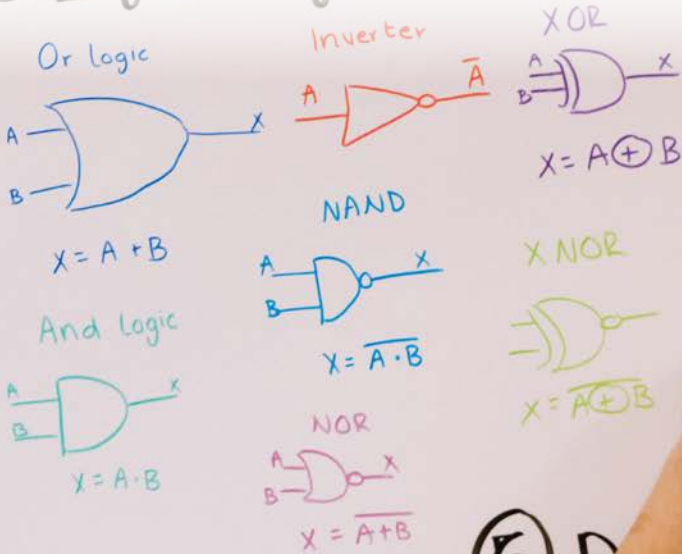 Or logic
A
B
X
X = A + B
And Logic
A
B
X
X = A · B
Inverter
A
A̅
NAND
A
B
X
X = A̅ ̅·̅ ̅B̅
NOR
A
B
X
X = A̅+̅B̅
XOR
A
B
X
X = A ⊕ B
X NOR
X = A̅ ̅⊕̅ ̅B̅